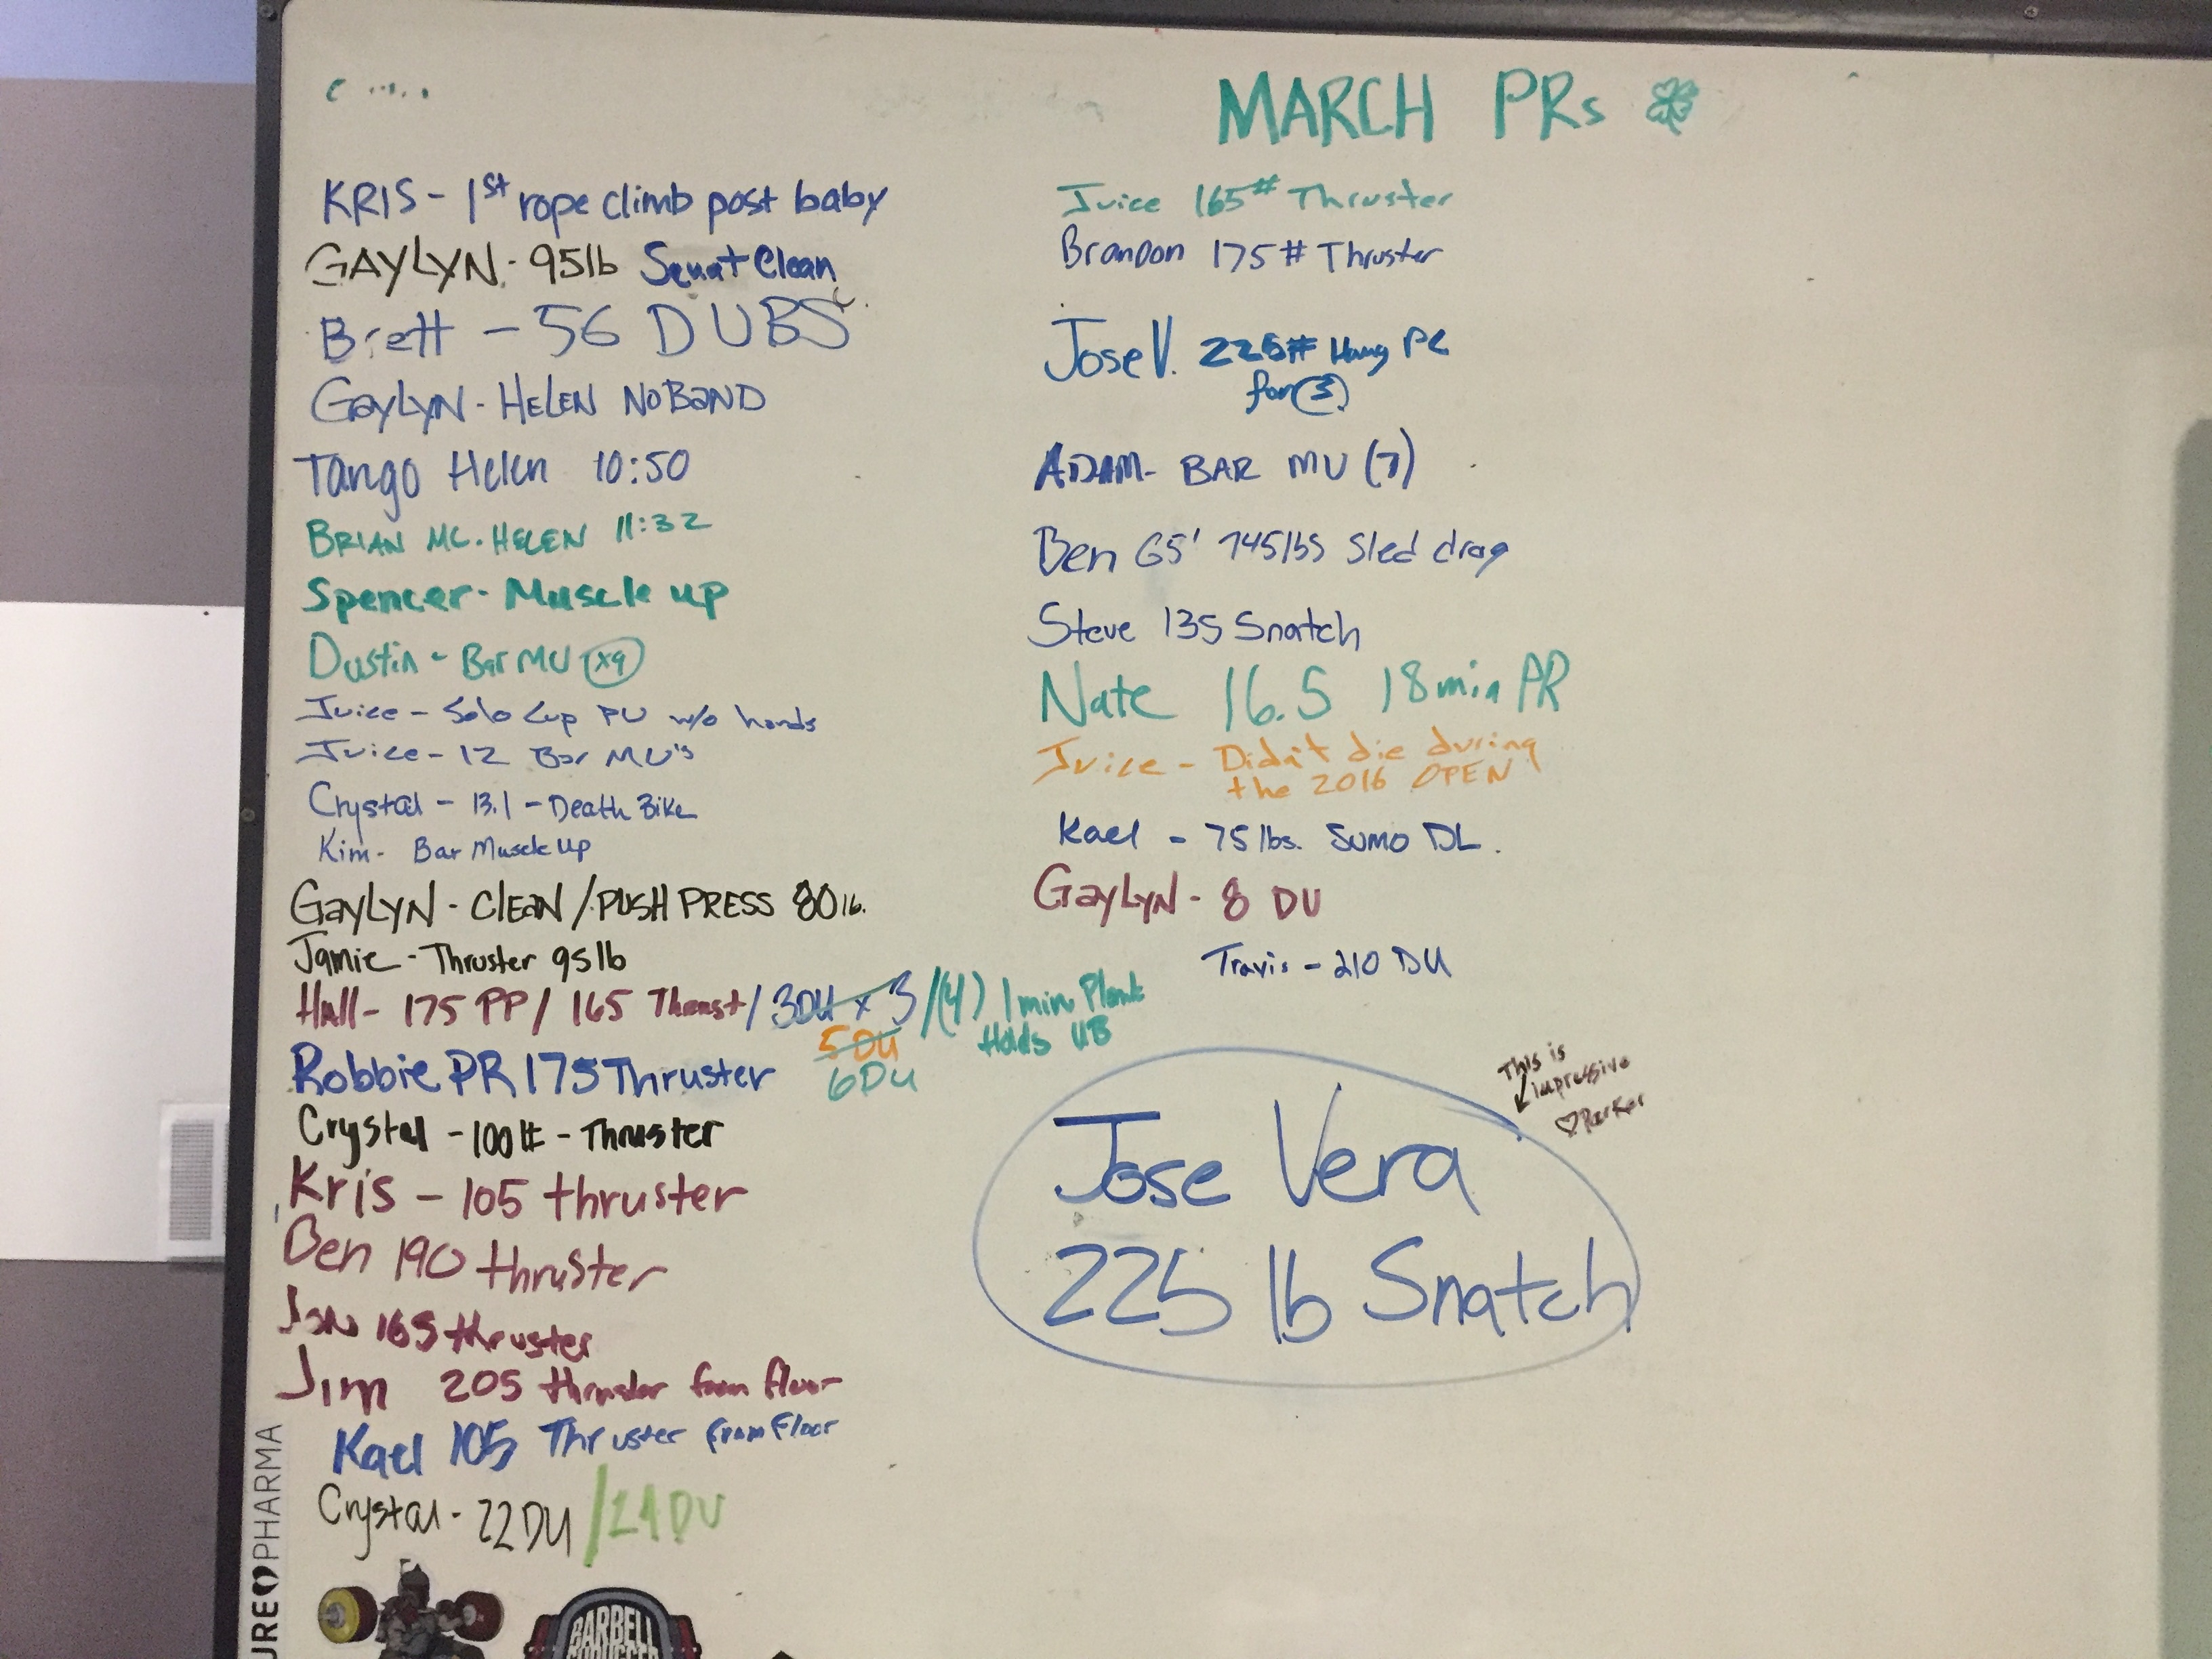 MARCH PRs
KRIS - 1st rope climb post baby
GAYLYN - 95lb Squat Clean
Brett - 56 DUBS
GayLyn - HELEN NO BAND
Tango Helen 10:50
BRIAN MC. HELEN 11:32
Spencer - Muscle up
Dustin - Bar MU (x9)
Juice - Solo Cup PU w/o hands
Juice - 12 Bar MU's
Crystal - 13.1 - Death Bike
Kim - Bar Muscle Up
GayLyn - CLEAN / PUSH PRESS 80 lb.
Jamie - Thruster 95lb
Hall - 175 PP / 165 Thrust / 3DU x 3 / (4) 1 min Plank
Holds UB
5 DU
6DU
Robbie PR 175 Thruster
Crystal - 100# - Thruster
Kris - 105 thruster
Ben 190 thruster
Jon 165 thruster
Jim 205 thruster from floor
Kael 105 Thruster from Floor
Crystal - 22 DU / 24 DU
Juice 165# Thruster
Brandon 175# Thruster
Jose V. 225# Hang PC
for (3)
ADAM - BAR MU (7)
Ben 65' 745lbs Sled drag
Steve 135 Snatch
Nate 16.5 18 min PR
Juice - Didn't die during
the 2016 OPEN
Kael - 75 lbs. SUMO DL.
GayLyn - 8 DU
Travis - 210 DU
This is
impressive
♡ Parker
Jose Vera
225 lb Snatch
PHARMA
BARBELL